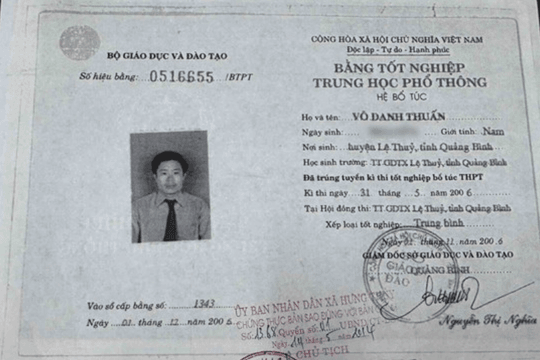 BỘ GIÁO DỤC VÀ ĐÀO TẠO
Số hiệu bằng: 0516655 /BTPT
CỘNG HÒA XÃ HỘI CHỦ NGHĨA VIỆT NAM
Độc lập - Tự do - Hạnh phúc
BẰNG TỐT NGHIỆP
TRUNG HỌC PHỔ THÔNG
HỆ BỔ TÚC
Họ và tên: VÕ DANH THUẤN
Ngày sinh: Giới tính: Nam
Nơi sinh: huyện Lệ Thuỷ, tỉnh Quảng Bình
Học sinh trường: TT GDTX Lệ Thuỷ, tỉnh Quảng Bình
Đã trúng tuyển kì thi tốt nghiệp bổ túc THPT
Kì thi ngày 31 tháng 5 năm 2006
Tại Hội đồng thi: TT GDTX Lệ Thuỷ, tỉnh Quảng Bình
Xếp loại tốt nghiệp: Trung bình
Ngày 01 tháng 11 năm 2006
GIÁM ĐỐC SỞ GIÁO DỤC VÀ ĐÀO TẠO
QUẢNG BÌNH
Nguyễn Thị Nghĩa
Vào sổ cấp bằng số: 1343
Ngày 01 tháng 12 năm 2006
ỦY BAN NHÂN DÂN XÃ HƯNG
CHỨNG THỰC BẢN SAO ĐÚNG VỚI BẢN
Số 1368 Quyển số 01
Ngày tháng 5 năm 2014
CHỦ TỊCH